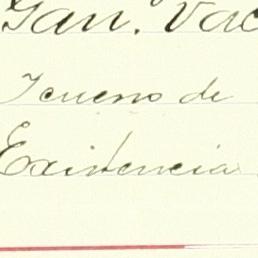 Gan. Vac
Terreno de
Existencia